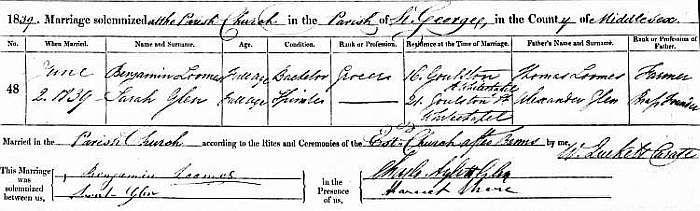 1839. Marriage solemnized at the Parish Church in the Parish of St. Georges, in the County of Middlesex.
No. When Married. Name and Surname. Age. Condition. Rank or Profession. Residence at the Time of Marriage. Father's Name and Surname. Rank or Profession of Father.
48 June Benjamin Loomes Full age Bachelor Grocer 16. Goulston St. Whitechapel Thomas Loomes Farmer
2. 1839 Sarah Glen Full age Spinster — 21. Goulston St Whitechapel Alexander Glen
Married in the Parish Church according to the Rites and Ceremonies of the Est. Church after Banns by me,
W. Luckett Curate
This Marriage was solemnized between us,
Benjamin Loomes
Sarah Glen
In the Presence of us,
Charles Glen
Harriet